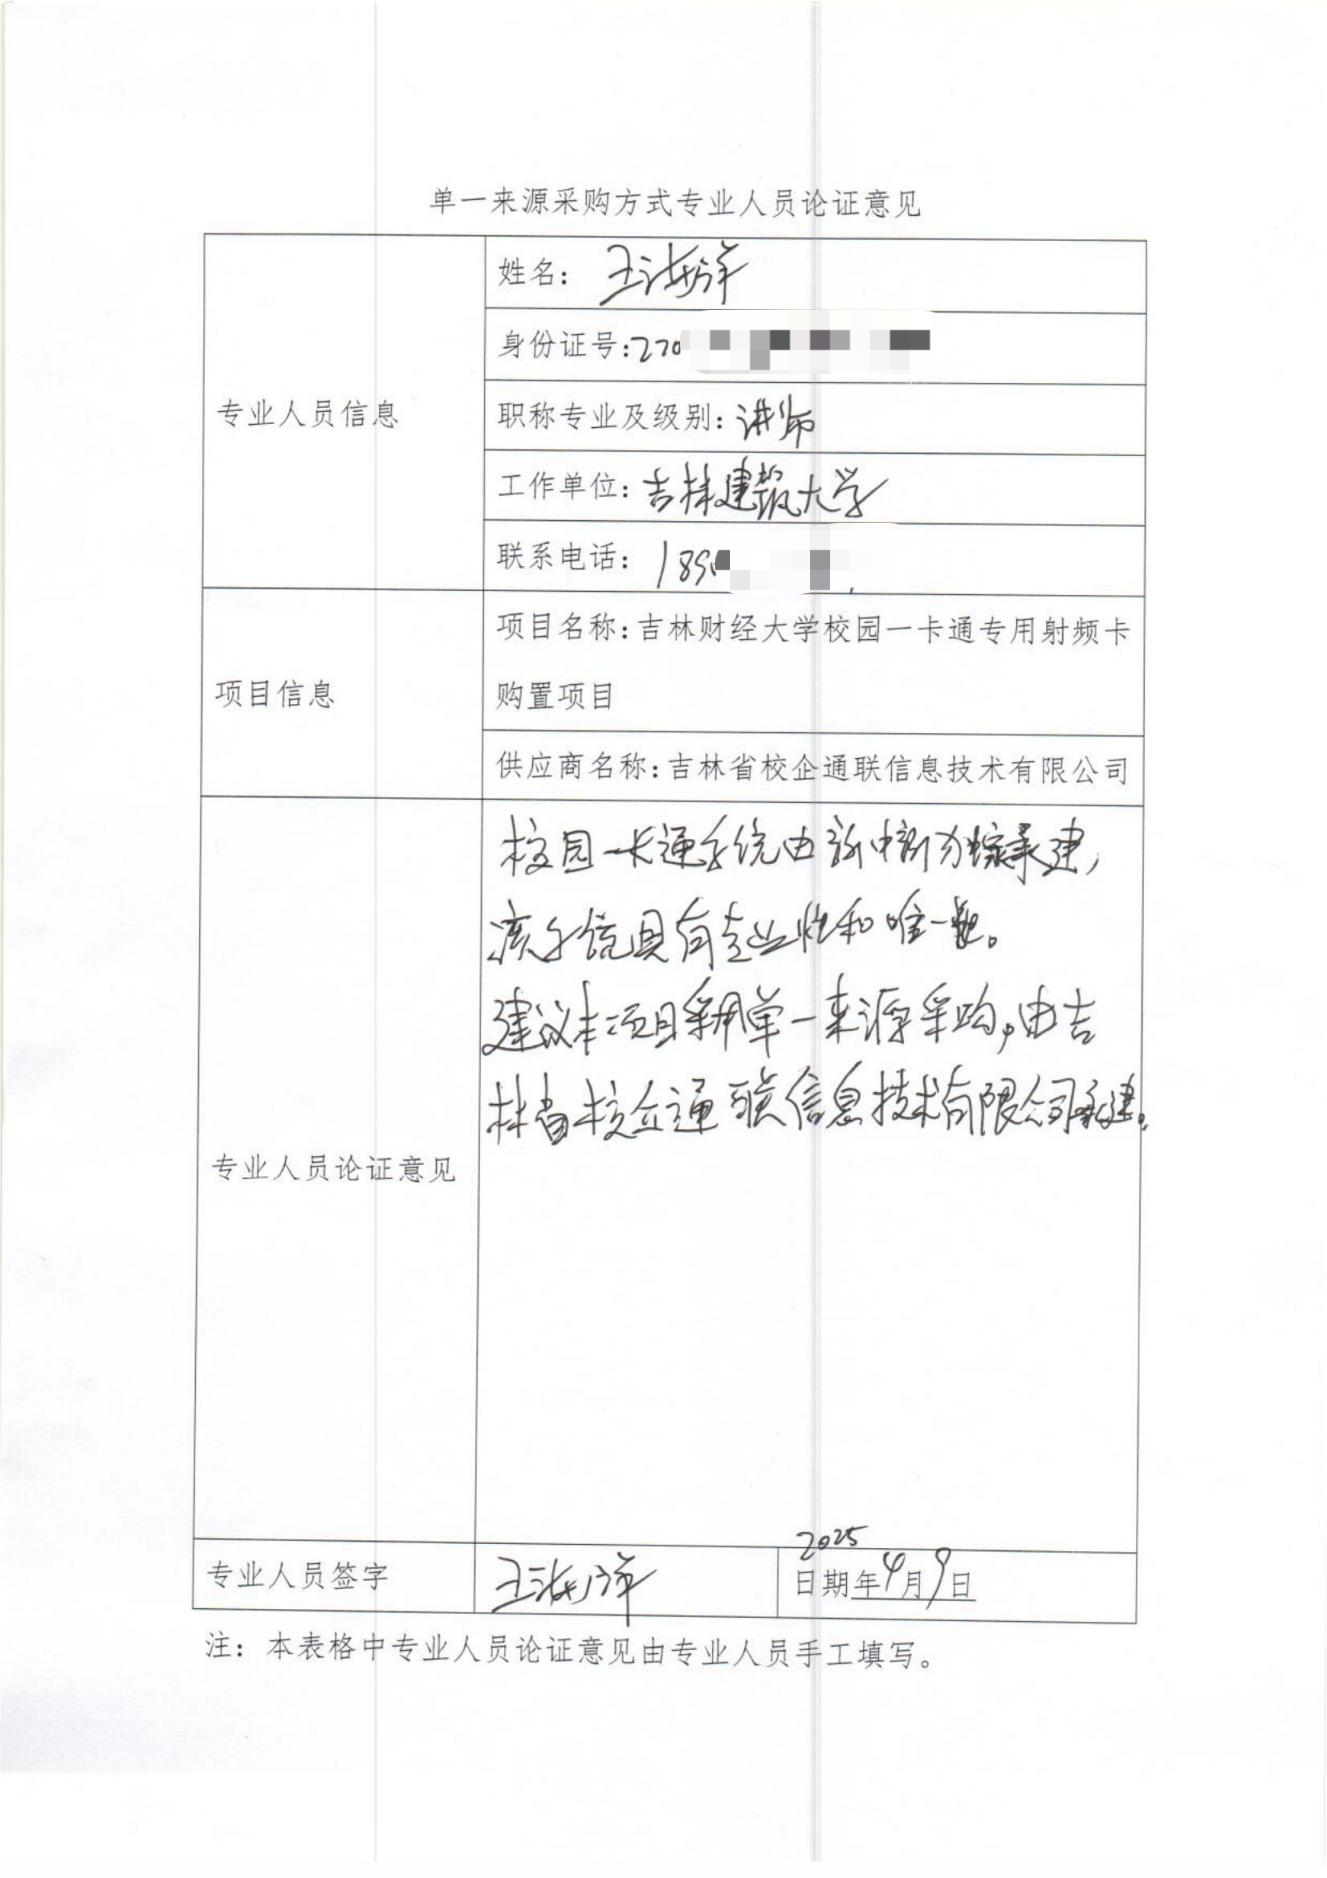 单一来源采购方式专业人员论证意见
专业人员信息
姓名：王海洋
身份证号:220
职称专业及级别：讲师
工作单位：吉林建筑大学
联系电话：189
项目信息
项目名称：吉林财经大学校园一卡通专用射频卡
购置项目
供应商名称：吉林省校企通联信息技术有限公司
专业人员论证意见
校园一卡通系统由新中新承建，
该系统具有专业性和唯一性。
建议本项目采用单一来源采购，由吉
林省校企通联信息技术有限公司承建。
专业人员签字
王海洋
2025
日期年4月9日
注：本表格中专业人员论证意见由专业人员手工填写。